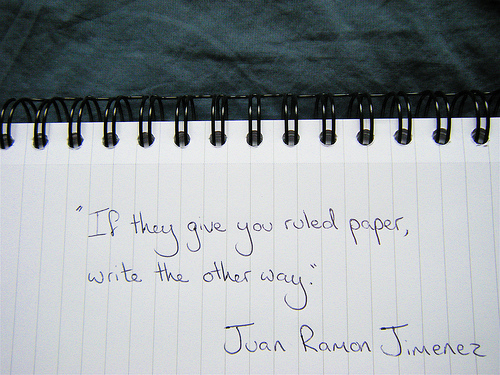 "If they give you ruled paper,
write the other way."
Juan Ramon Jimenez